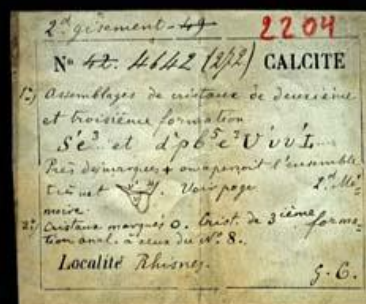 2.d gisement 49
2204
No 42. 4642 (2/2) CALCITE
1o) Assemblages de cristaux de deuxième
et troisième formation
S'e3 et d'pb5e3U'vv'I
Près des marques + on aperçoit l'ensemble
très net. Voir page 2.d Mé-
moire.
2o) Cristaux marqués O. Crist. de 3ième forma-
tion anal. à ceux du No. 8.
Localité Rhisnes.
G. C.